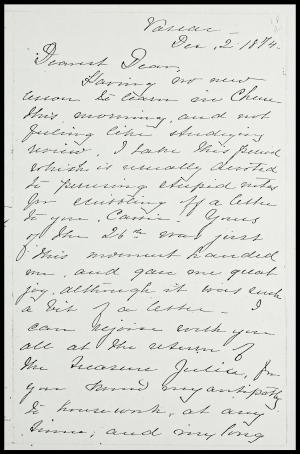 Vassar
Dec. 2 1874.
Dearest Dear,
Having no new
lesson to learn in Chem
this morning, and not
feeling like studying
review, I take this period
which is usually devoted
to perusing stupid notes
for scribbling off a letter
to you, Carrie. Yours
of the 26th was just
this moment handed
me, and gave me great
joy, although it was such
a bit of a letter. I
can rejoice with you
all at the return of
the treasure Julia, for
you know my antipathy
to housework, at any
time, and my long